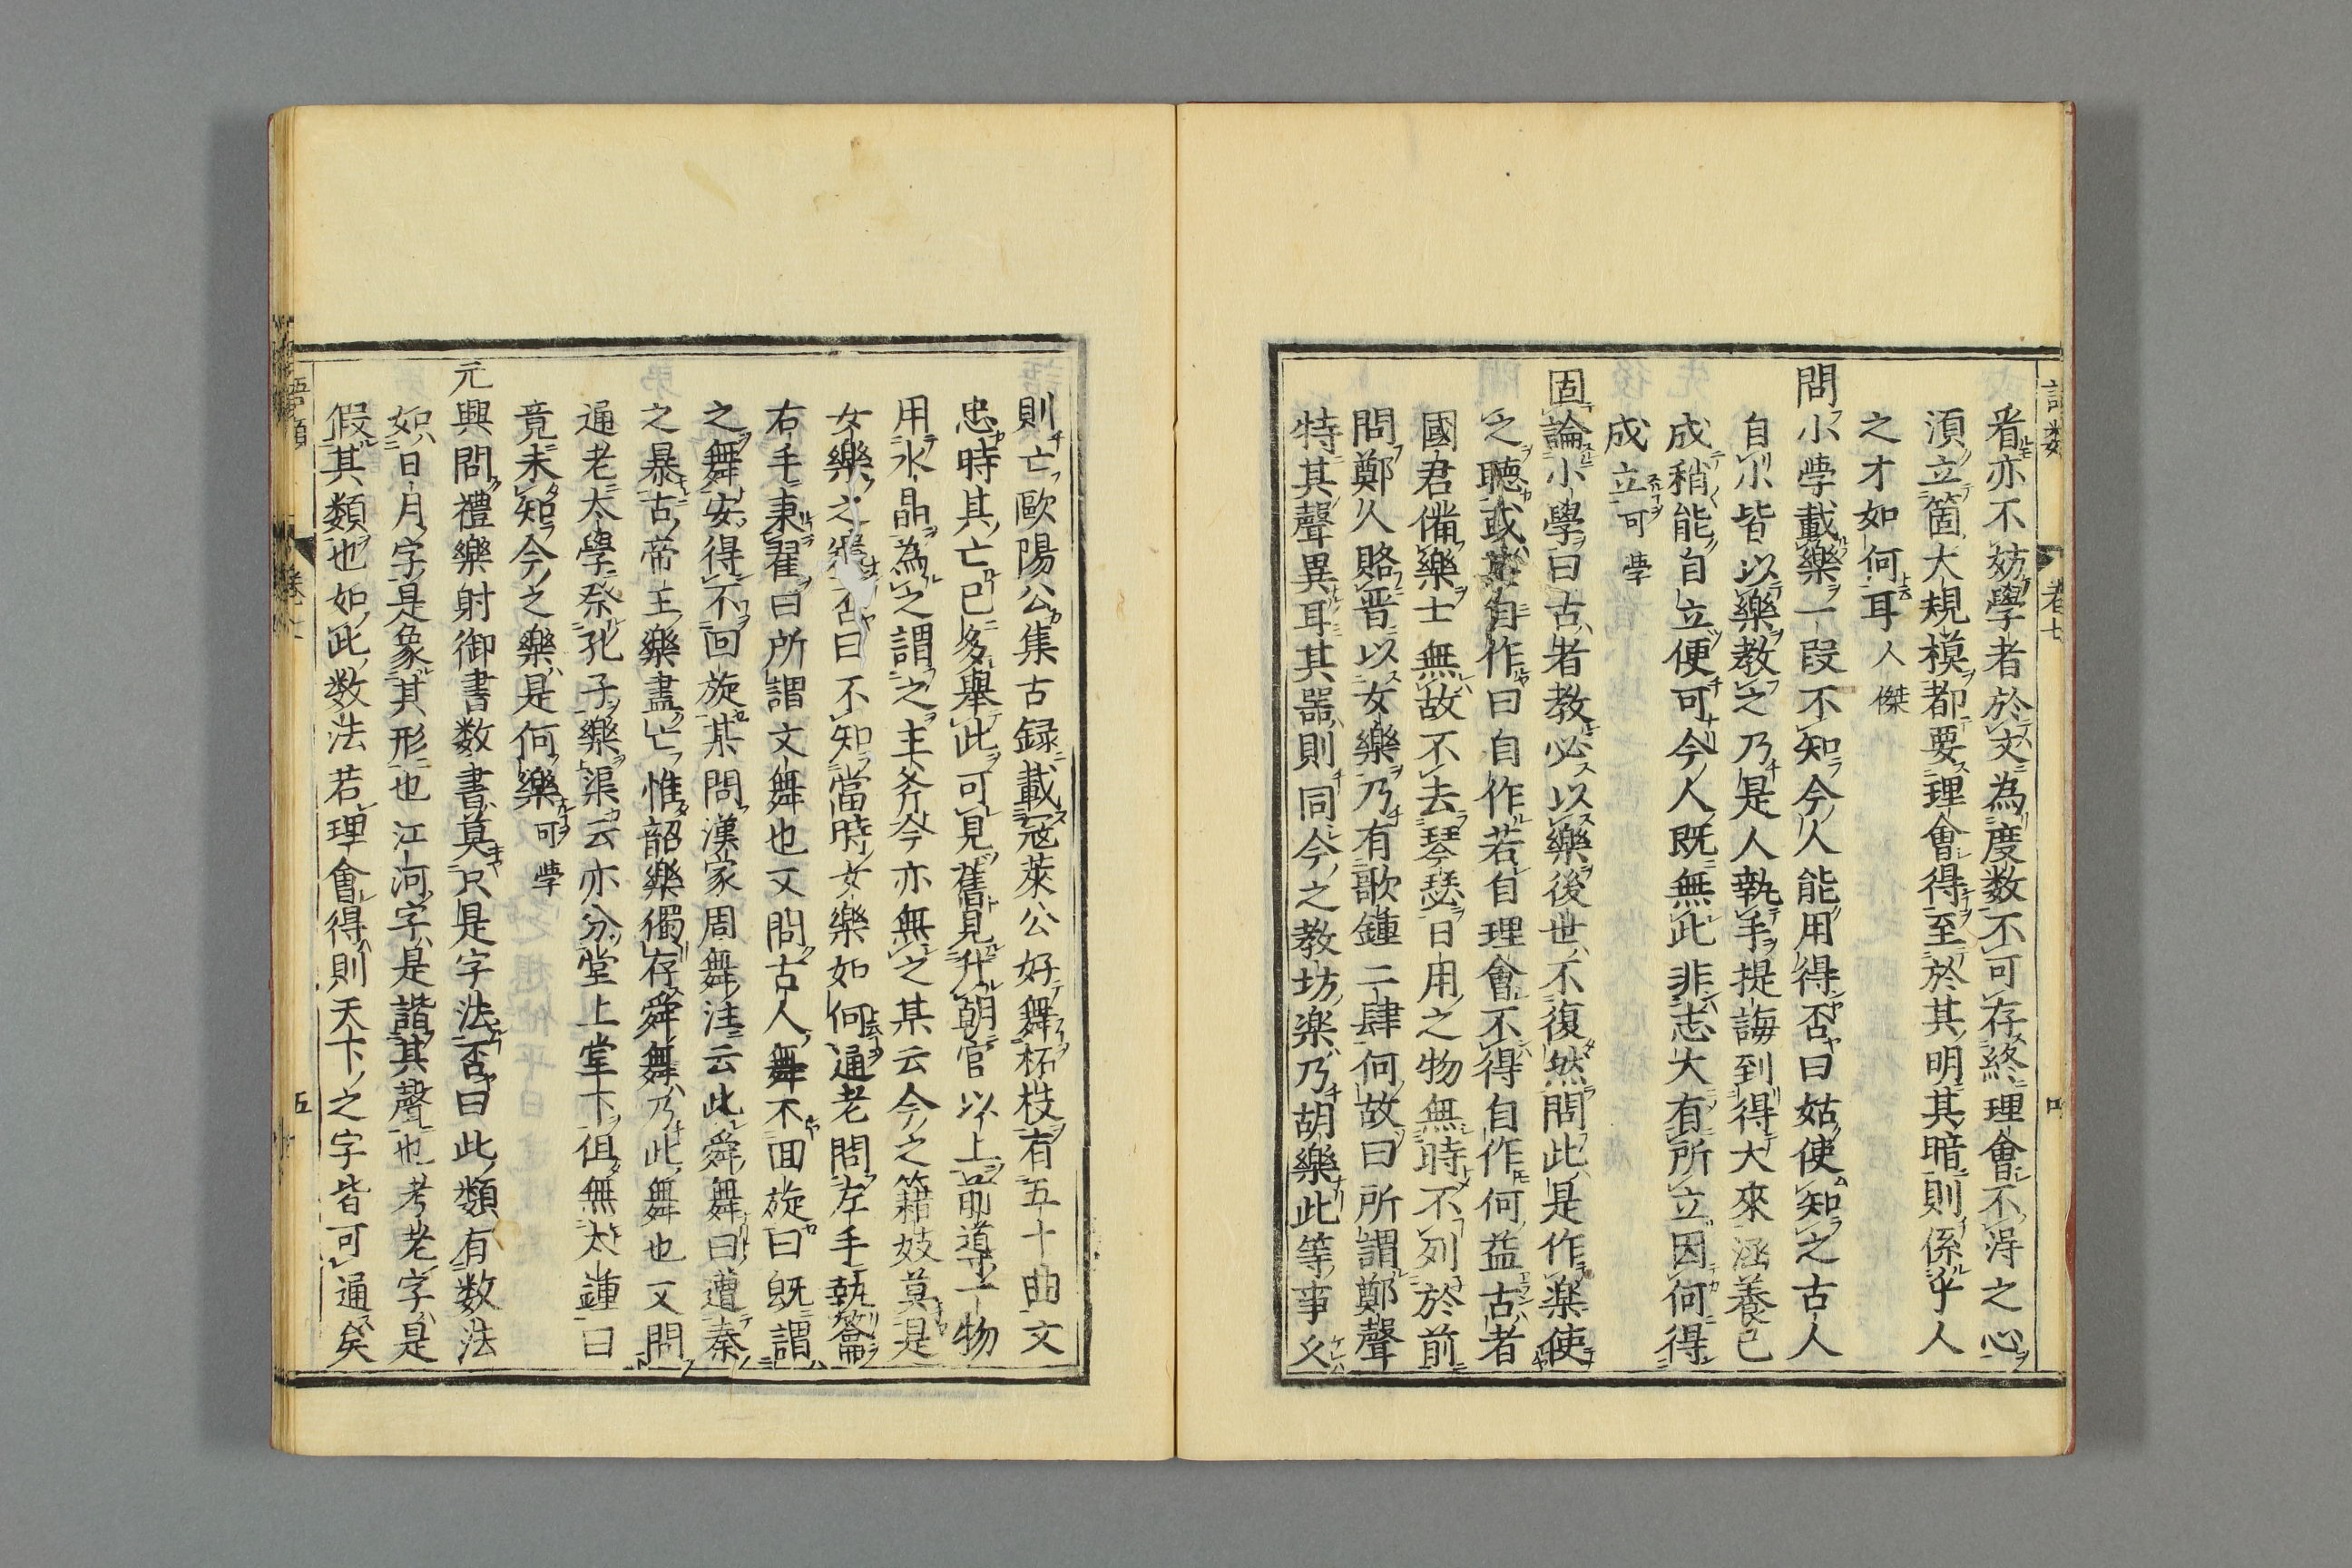 看亦不妨學者於文為度数不可存終理會不淂之心
湏立箇大規模都要理會得至於其明其暗則係乎人
之才如何耳人傑
問小斈載樂一段不知今人能用得否曰姑使知之古人
自小皆以樂教之乃是人執手提誨到得大來涵養已
成稍能自立便可今人既無此非志大有所立因何得
成立可斈
固論小學曰古者教必以樂後世不復然問此是作楽使
之聴或其自作曰自作若自理會不得自作何益古者
國君備樂士無故不去琴瑟日用之物無時不列於前
問鄭人賂晋以女樂乃有歌鍾二肆何故曰所謂鄭聲
特其聲異耳其噐則同今之教坊楽乃胡樂此等事乆
則亡歐陽公集古録載寇萊公好舞柘枝有五十曲文
忠時其亡已多舉此可見舊見升朝官以上前導一物
用水晶為之謂之主斧今亦無之某云今之籍妓莫是
女樂之否曰不知當時女樂如何通老問左手執籥
右手秉翟曰所謂文舞也又問古人舞不囬旋曰既謂
之舞安得不回旋某問漢家周舞注云此舜舞曰遭秦
之暴古帝王樂盡亡惟韶樂獨存舜舞乃此舞也又問
通老太學祭孔子樂渠云亦分堂上堂下但無大鍾曰
竟未知今之樂是何樂可斈
元興問禮樂射御書数書莫只是字法否曰此類有数法
如日月字是象其形也江河字是諧其聲也考老字是
假其類也如此数法若理會得則天下之字皆可通矣
語類
卷七
五